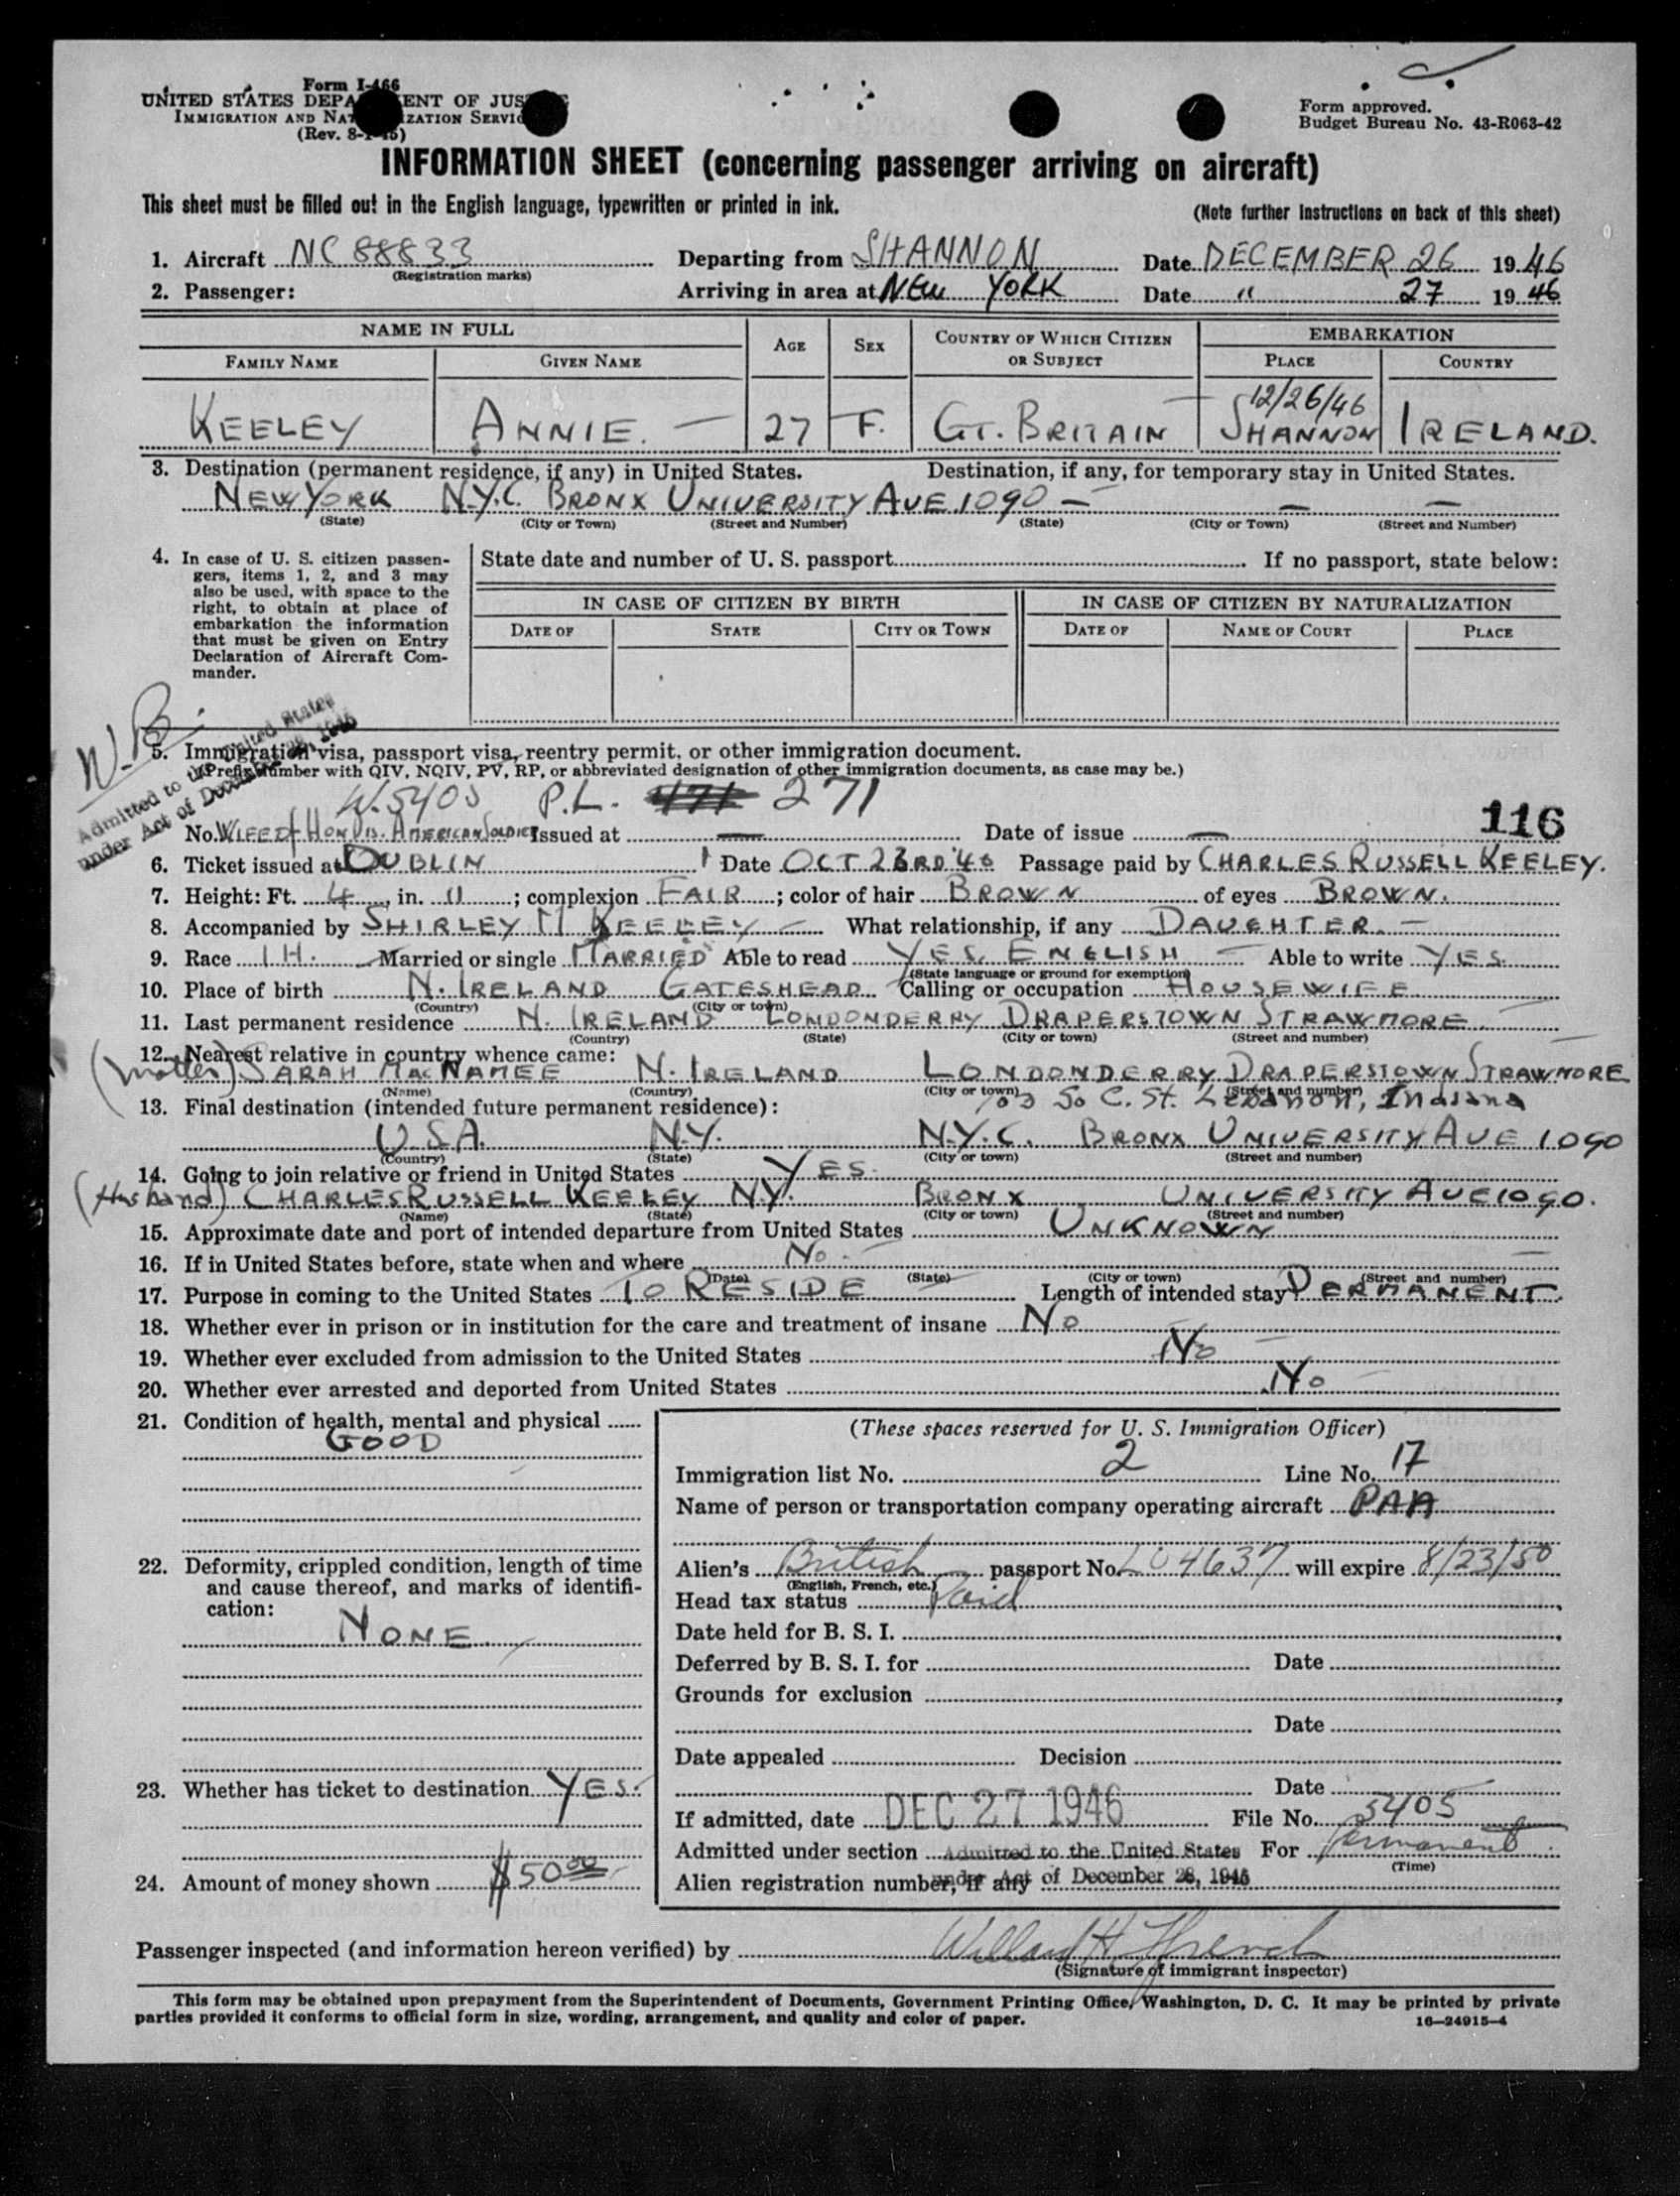 Form I-466
UNITED STATES DEPA ENT OF JUS
IMMIGRATION AND NAT IZATION SERVIC
(Rev. 8-1-45)
Form approved.
Budget Bureau No. 43-R063-42
INFORMATION SHEET (concerning passenger arriving on aircraft)
This sheet must be filled out in the English language, typewritten or printed in ink.
(Note further instructions on back of this sheet)
1. Aircraft NC 88833 Departing from SHANNON Date DECEMBER 26 1946
(Registration marks)
2. Passenger: Arriving in area at NEW YORK Date " 27 1946
NAME IN FULL AGE SEX COUNTRY OF WHICH CITIZEN OR SUBJECT EMBARKATION
FAMILY NAME GIVEN NAME PLACE COUNTRY
12/26/46
KEELEY ANNIE. — 27 F. GT. BRITAIN — SHANNON IRELAND.
3. Destination (permanent residence, if any) in United States. Destination, if any, for temporary stay in United States.
NEW YORK N.Y.C. BRONX UNIVERSITY AVE 1090 — — —
(State) (City or Town) (Street and Number) (State) (City or Town) (Street and Number)
4. In case of U. S. citizen passen-
gers, items 1, 2, and 3 may
also be used, with space to the
right, to obtain at place of
embarkation the information
that must be given on Entry
Declaration of Aircraft Com-
mander.
State date and number of U. S. passport If no passport, state below:
IN CASE OF CITIZEN BY BIRTH IN CASE OF CITIZEN BY NATURALIZATION
DATE OF STATE CITY OR TOWN DATE OF NAME OF COURT PLACE
W.B.
Admitted to the United States
under Act of December 28, 1945
5. Immigration visa, passport visa, reentry permit, or other immigration document.
(Prefix number with QIV, NQIV, PV, RP, or abbreviated designation of other immigration documents, as case may be.)
W. 5405 P.L. 471 271
116
No. WIFE OF HON DIS. AMERICAN SOLDIER Issued at — Date of issue —
6. Ticket issued at DUBLIN Date OCT 23RD '46 Passage paid by CHARLES RUSSELL KEELEY.
7. Height: Ft. 4, in. 11; complexion FAIR; color of hair BROWN of eyes BROWN.
8. Accompanied by SHIRLEY M KEELEY — What relationship, if any DAUGHTER. —
9. Race IH. Married or single MARRIED Able to read YES, ENGLISH — Able to write YES.
(State language or ground for exemption)
10. Place of birth N. IRELAND GATESHEAD Calling or occupation HOUSEWIFE
(Country) (City or town)
11. Last permanent residence N. IRELAND LONDONDERRY DRAPERSTOWN STRAWMORE.
(Country) (State) (City or town) (Street and number)
12. Nearest relative in country whence came:
(Mother) SARAH MACNAMEE N. IRELAND LONDONDERRY DRAPERSTOWN STRAWMORE
(Name) (Country) (City or town) (Street and number)
So C. St. Lebanon, Indiana
13. Final destination (intended future permanent residence):
U.S.A. N.Y. N.Y.C. BRONX UNIVERSITY AVE 1090
(Country) (State) (City or town) (Street and number)
14. Going to join relative or friend in United States YES.
(Husband) CHARLES RUSSELL KEELEY N.Y. BRONX UNIVERSITY AVE 1090.
(Name) (State) (City or town) (Street and number)
15. Approximate date and port of intended departure from United States UNKNOWN
16. If in United States before, state when and where No. —
(Date) (State) (City or town) (Street and number)
17. Purpose in coming to the United States TO RESIDE Length of intended stay PERMANENT.
18. Whether ever in prison or in institution for the care and treatment of insane No
19. Whether ever excluded from admission to the United States No
20. Whether ever arrested and deported from United States No
21. Condition of health, mental and physical
GOOD
22. Deformity, crippled condition, length of time
and cause thereof, and marks of identifi-
cation:
NONE
23. Whether has ticket to destination YES.
24. Amount of money shown $50 00
(These spaces reserved for U. S. Immigration Officer)
Immigration list No. 2 Line No. 17
Name of person or transportation company operating aircraft PAA
Alien's British passport No. L04637 will expire 8/23/50
(English, French, etc.)
Head tax status Paid
Date held for B. S. I.
Deferred by B. S. I. for Date
Grounds for exclusion
Date
Date appealed Decision
Date
If admitted, date DEC 27 1946 File No. 5405
Admitted under section Admitted to the United States For Permanent
(Time)
Alien registration number, if any under Act of December 28, 1945
Passenger inspected (and information hereon verified) by Willard H. French
(Signature of immigrant inspector)
This form may be obtained upon prepayment from the Superintendent of Documents, Government Printing Office, Washington, D. C. It may be printed by private
parties provided it conforms to official form in size, wording, arrangement, and quality and color of paper.
16—24915-4